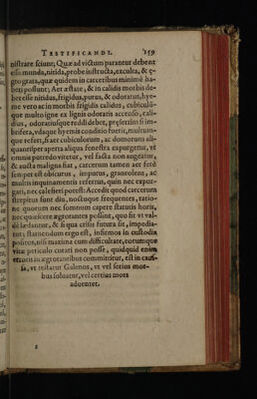 TESTIFICANDI. 159
nistrare sciunt, Quæ ad victum parantur debent
esse munda, nitida, probe instructa, exculta, & e-
gro grata, quæ quidem in carceribus minimè ha-
beri possunt; Aer æstate, & in calidis morbis de-
ber esse nitidus, frigidus, purus, & odoratus, hye-
me vero ac in morbis frigidis calidus, cubiculū-
que multo igne ex lignis odoratis accenso, cali-
dius, odoratiusque reddi debet, præsertim si im-
brifera, vdaque hyemis conditio fuerit, multum-
que refert, si aer cubiculorum, ac domorum ali-
quantisper aperta aliqua fenestra expurgetur, vt
omnis putredo vitetur, vel facta non augeatur,
& aucta maligna fiat, carcerum tamen aer ferè
semper est obscurus, impurus, graueolens, ac
multis inquinamentis refertus, quin nec expur-
gari, nec calefieri potest: Accedit quod carcerum
strepitus sunt diu, noctuque frequentes, ratio-
ne quorum nec somnum capere statutis horis,
nec quiescere ægrotantes possint, quo fit vt val-
dè lædantur, & si qua crisis futura sit, impedia-
tur; statuendum ergo est, infirmos in custodia
positos, nisi maxima cum difficultate, eorumque
vitæ periculo curari non posse, quidquid enim
erroris in ægrotantibus committitur, est in cau-
sa, vt testatur Galenus, vt vel serius mor-
bus soluatur, vel certius mors
aduentet.